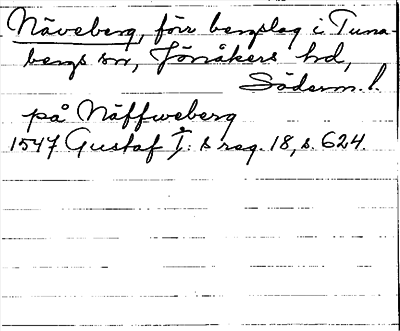 Näveberg, förr bergslag i Tuna-
bergs sn, Jönåkers hd,
Söderm. l.
på Näffweberg
1547 Gustaf I:s reg. 18, s. 624.